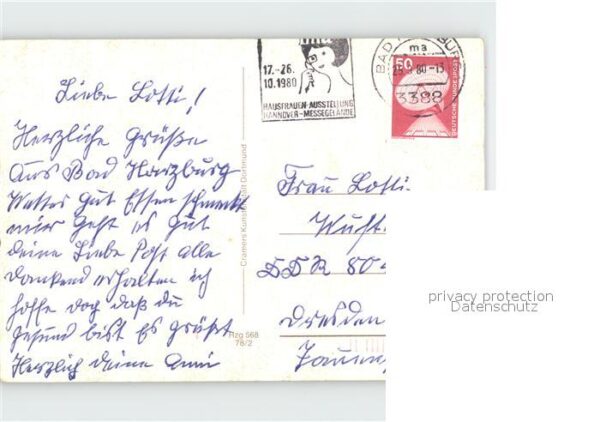 17.-26.
10.1980
HAUSFRAUEN-AUSSTELLUNG
HANNOVER-MESSEGELÄNDE
BAD
ma
80-13
3388
50
DEUTSCHE BUNDESPOST
Liebe Lotti!
Herzliche Grüße
aus Bad Harzburg
Wetter gut Essen schmeckt
mir geht es gut
deine Liebe Post alle
dankend erhalten ich
hoffe doch daß du
gesund bist Es grüßt
Herzlich deine Anni
Cramers Kunstanstalt Dortmund
Hzg 568
78/2
Frau Lotti
DDR 80
Dresden
privacy protection
Datenschutz